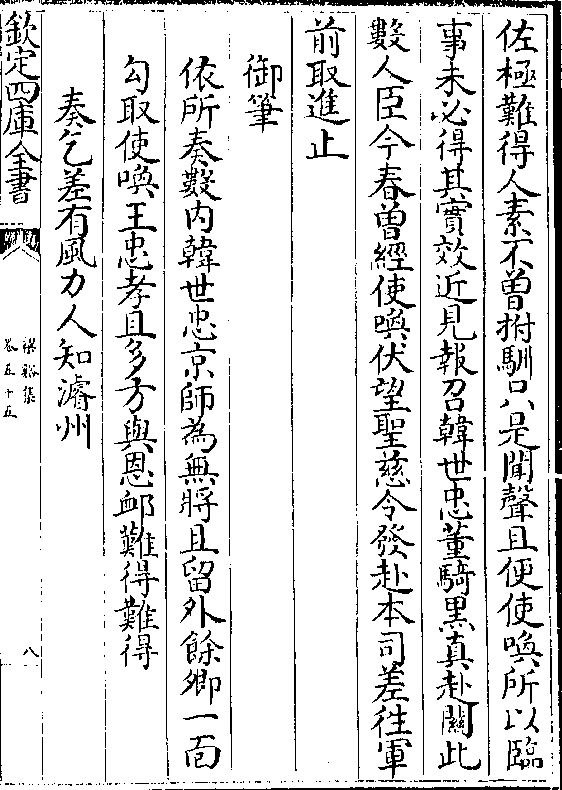 佐極難得人素不曽拊馴只是聞聲且便使喚所以臨
事未必得其實效近見報召韓世忠董騎黒真赴闕此
數人臣今春曽經使喚伏望聖慈令發赴本司差徃軍
前取進止
御筆
依所奏數内韓世忠京師為無將且留外餘卿一面
勾取使喚王忠孝且多方與恩䘏難得難得
奏乞差有風力人知濬州
欽定四庫全書
梁谿集
卷五十五
八